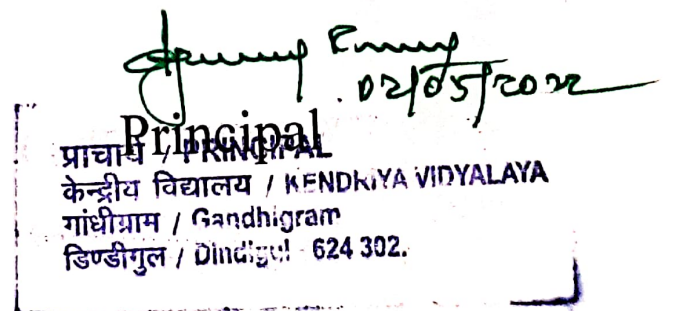 02/05/2022
Principal
प्राचार्य / PRINCIPAL
केन्द्रीय विद्यालय / KENDRIYA VIDYALAYA
गांधीग्राम / Gandhigram
डिण्डीगुल / Dindigul 624 302.